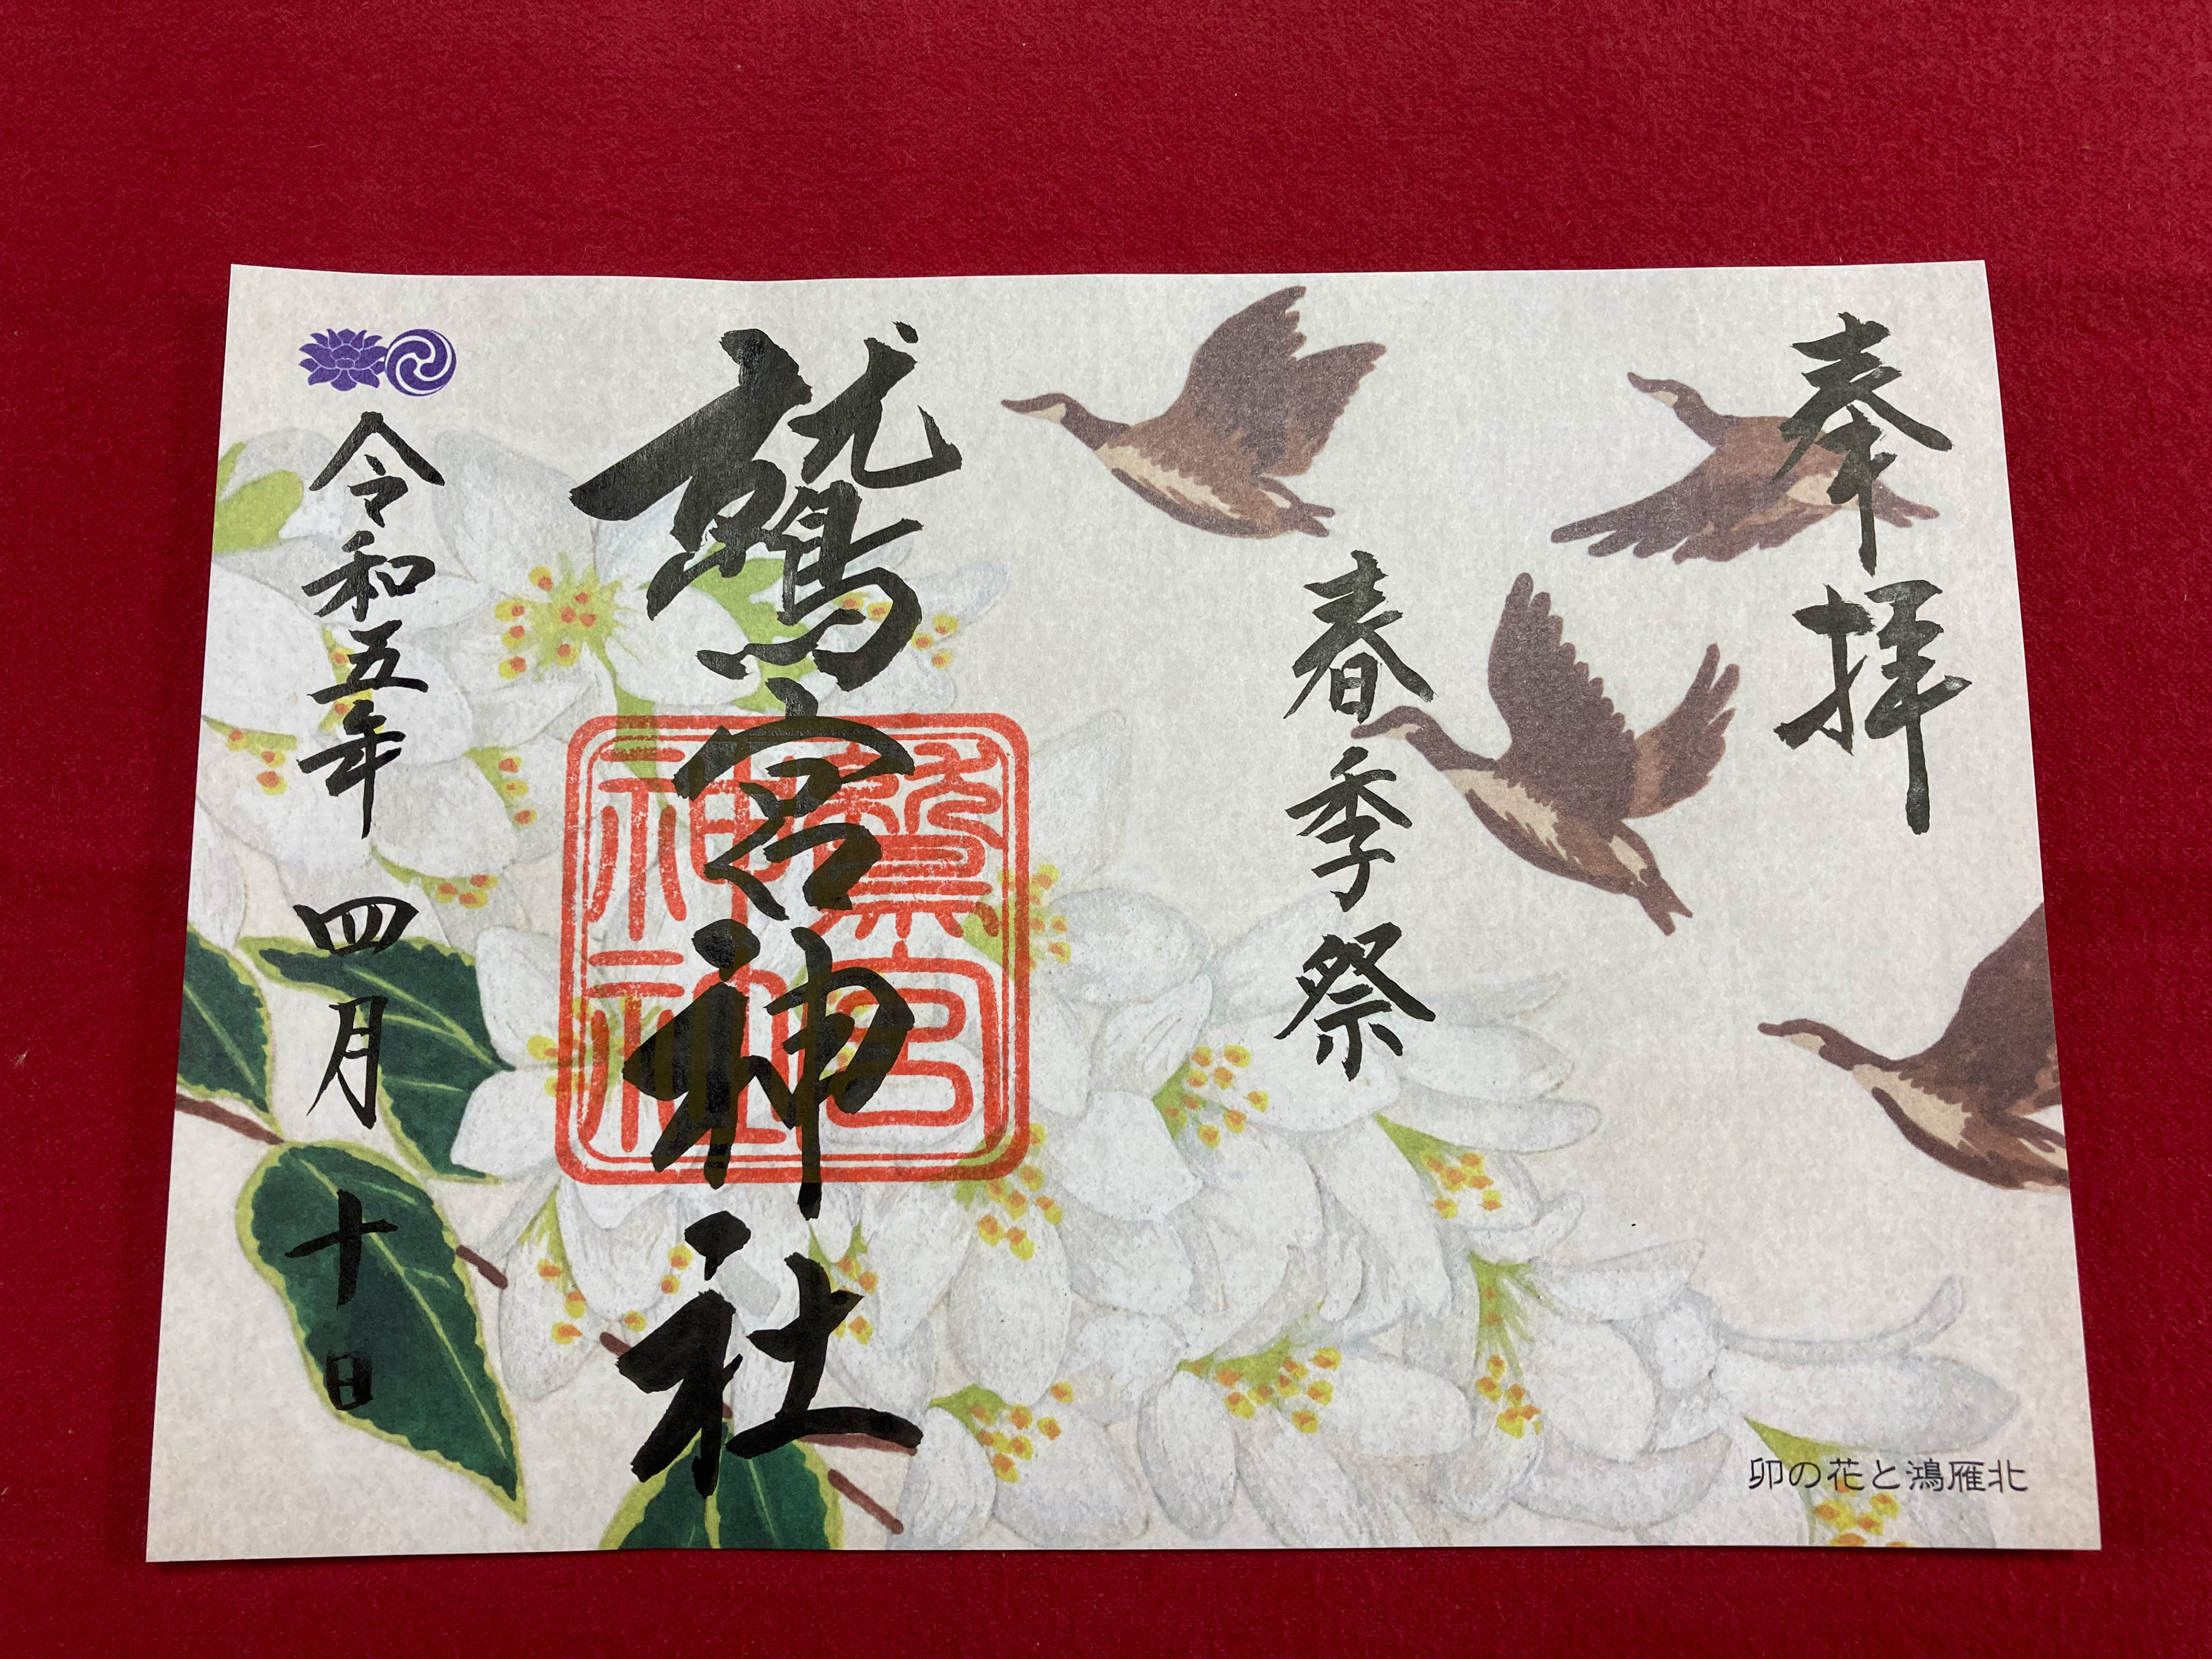 奉拝
春季祭
鷲宮神社
鷲宮
神社
令和五年 四月 十日
卯の花と鴻雁北